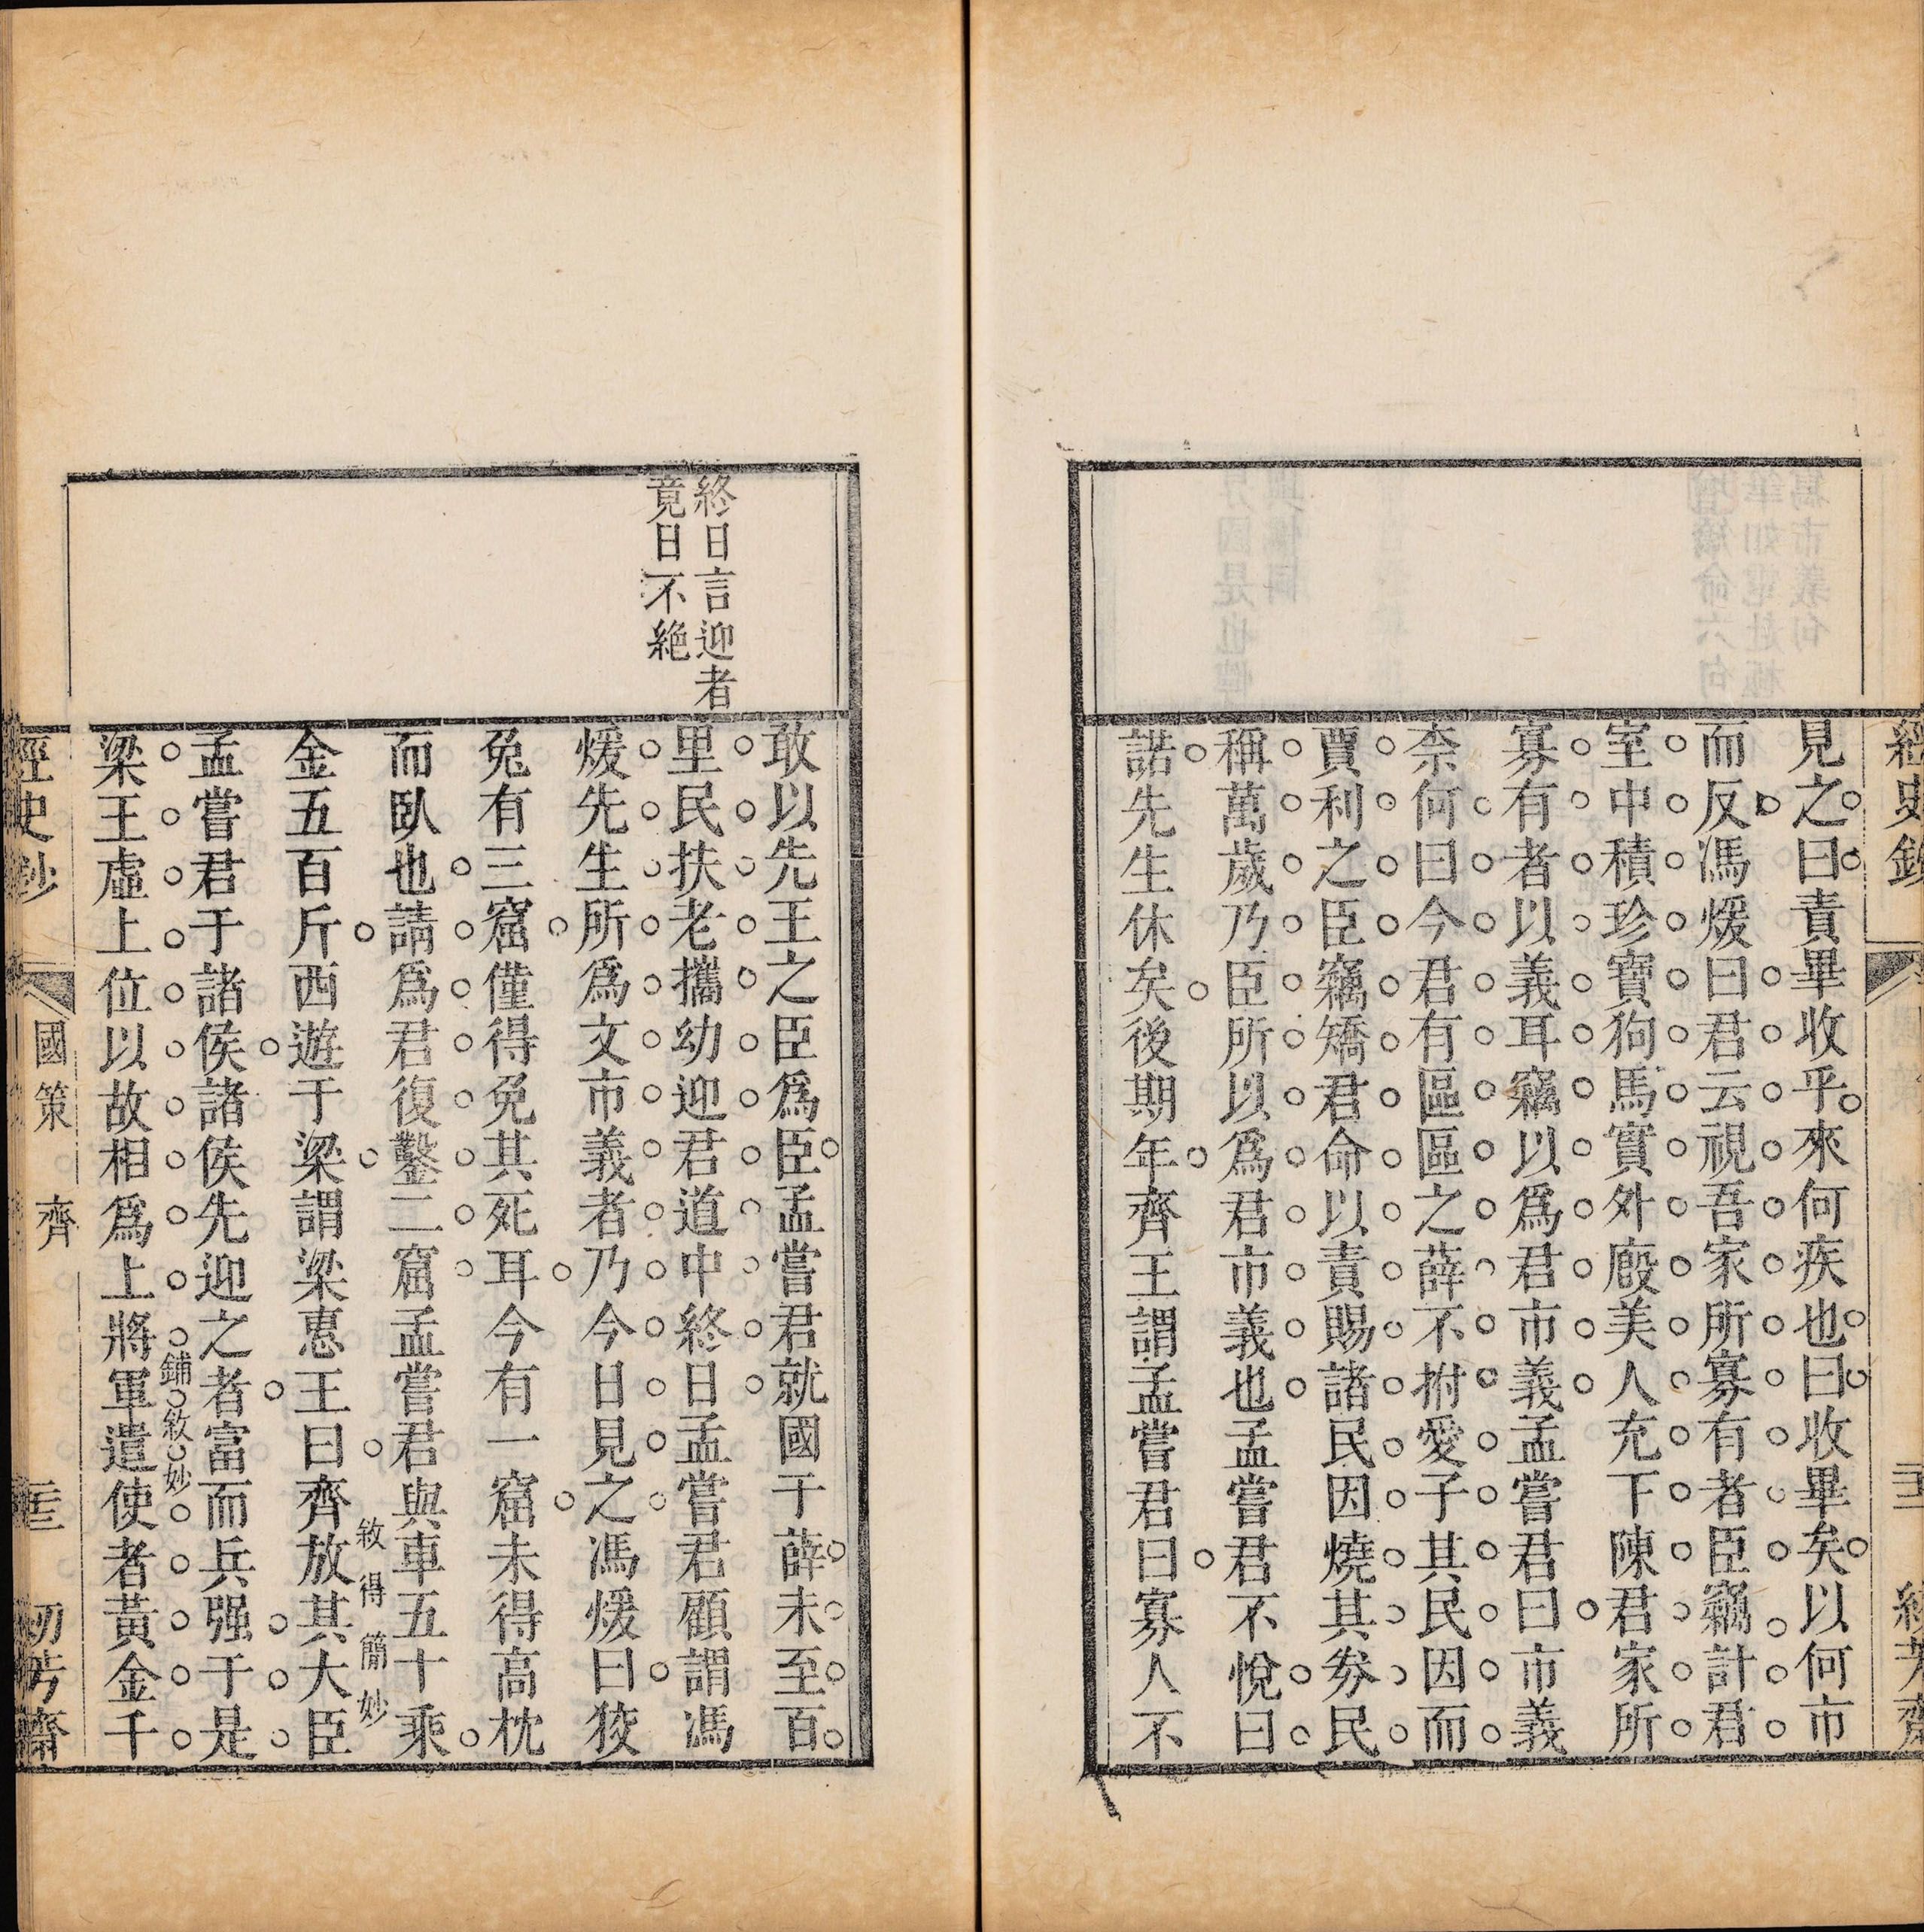 見之曰責畢收乎來何疾也曰收畢矣以何市
而反馮煖曰君云視吾家所寡有者臣竊計君
室中積珍寶狗馬實外廐美人充下陳君家所
寡有者以義耳竊以為君市義孟嘗君曰市義
柰何曰今君有區區之薛不拊愛子其民因而
賈利之臣竊矯君命以責賜諸民因燒其券民
稱萬歲乃臣所以為君市義也孟嘗君不悅曰
諾先生休矣後期年齊王謂孟嘗君曰寡人不
終日言迎者
竟日不絶
敢以先王之臣為臣孟嘗君就國于薛未至百
里民扶老攜幼迎君道中終日孟嘗君顧謂馮
煖先生所為文市義者乃今日見之馮煖曰狡
兔有三窟僅得免其死耳今有一窟未得高枕
而臥也請為君復鑿二窟孟嘗君與車五十乘
敘得簡妙
金五百斤西遊于梁謂梁惠王曰齊放其大臣
孟嘗君于諸侯諸侯先迎之者富而兵强于是
鋪敘妙
梁王虛上位以故相為上將軍遣使者黃金千
經史鈔
國策 齊